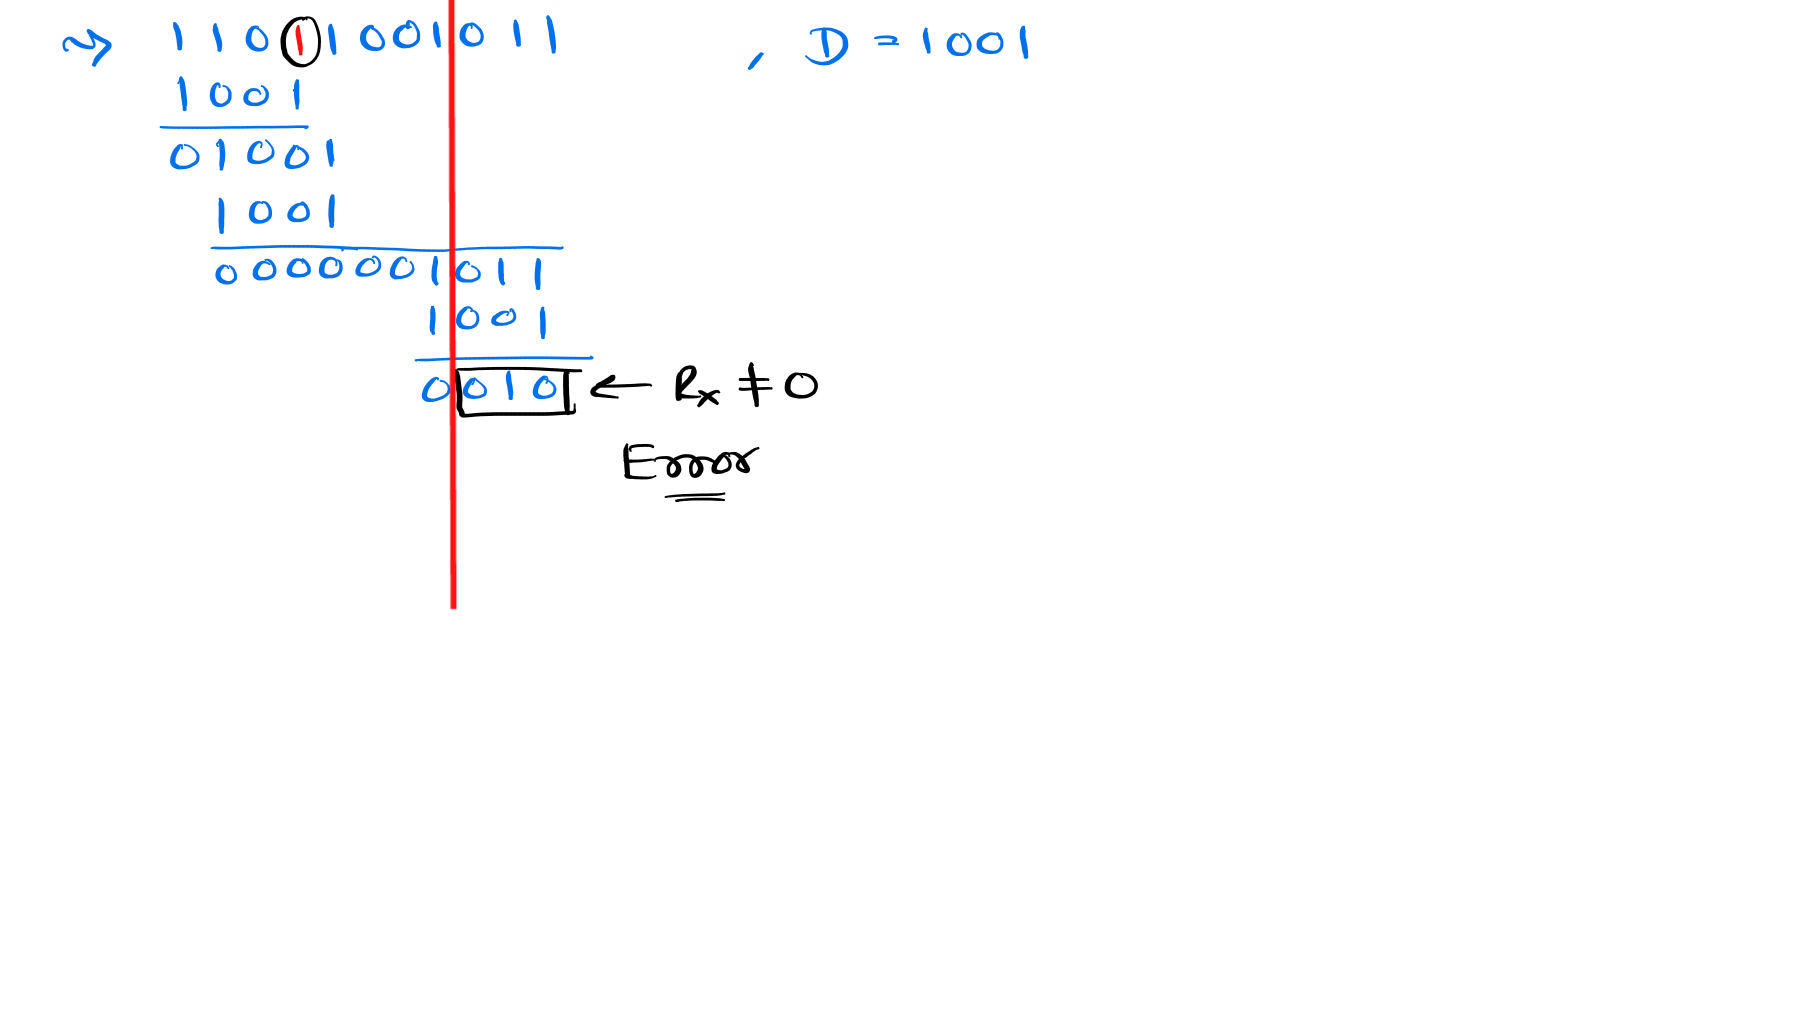 11011001011 , D = 1001
1001
01001
1001
0000001011
1001
0010 ← Rx ≠ 0
Error